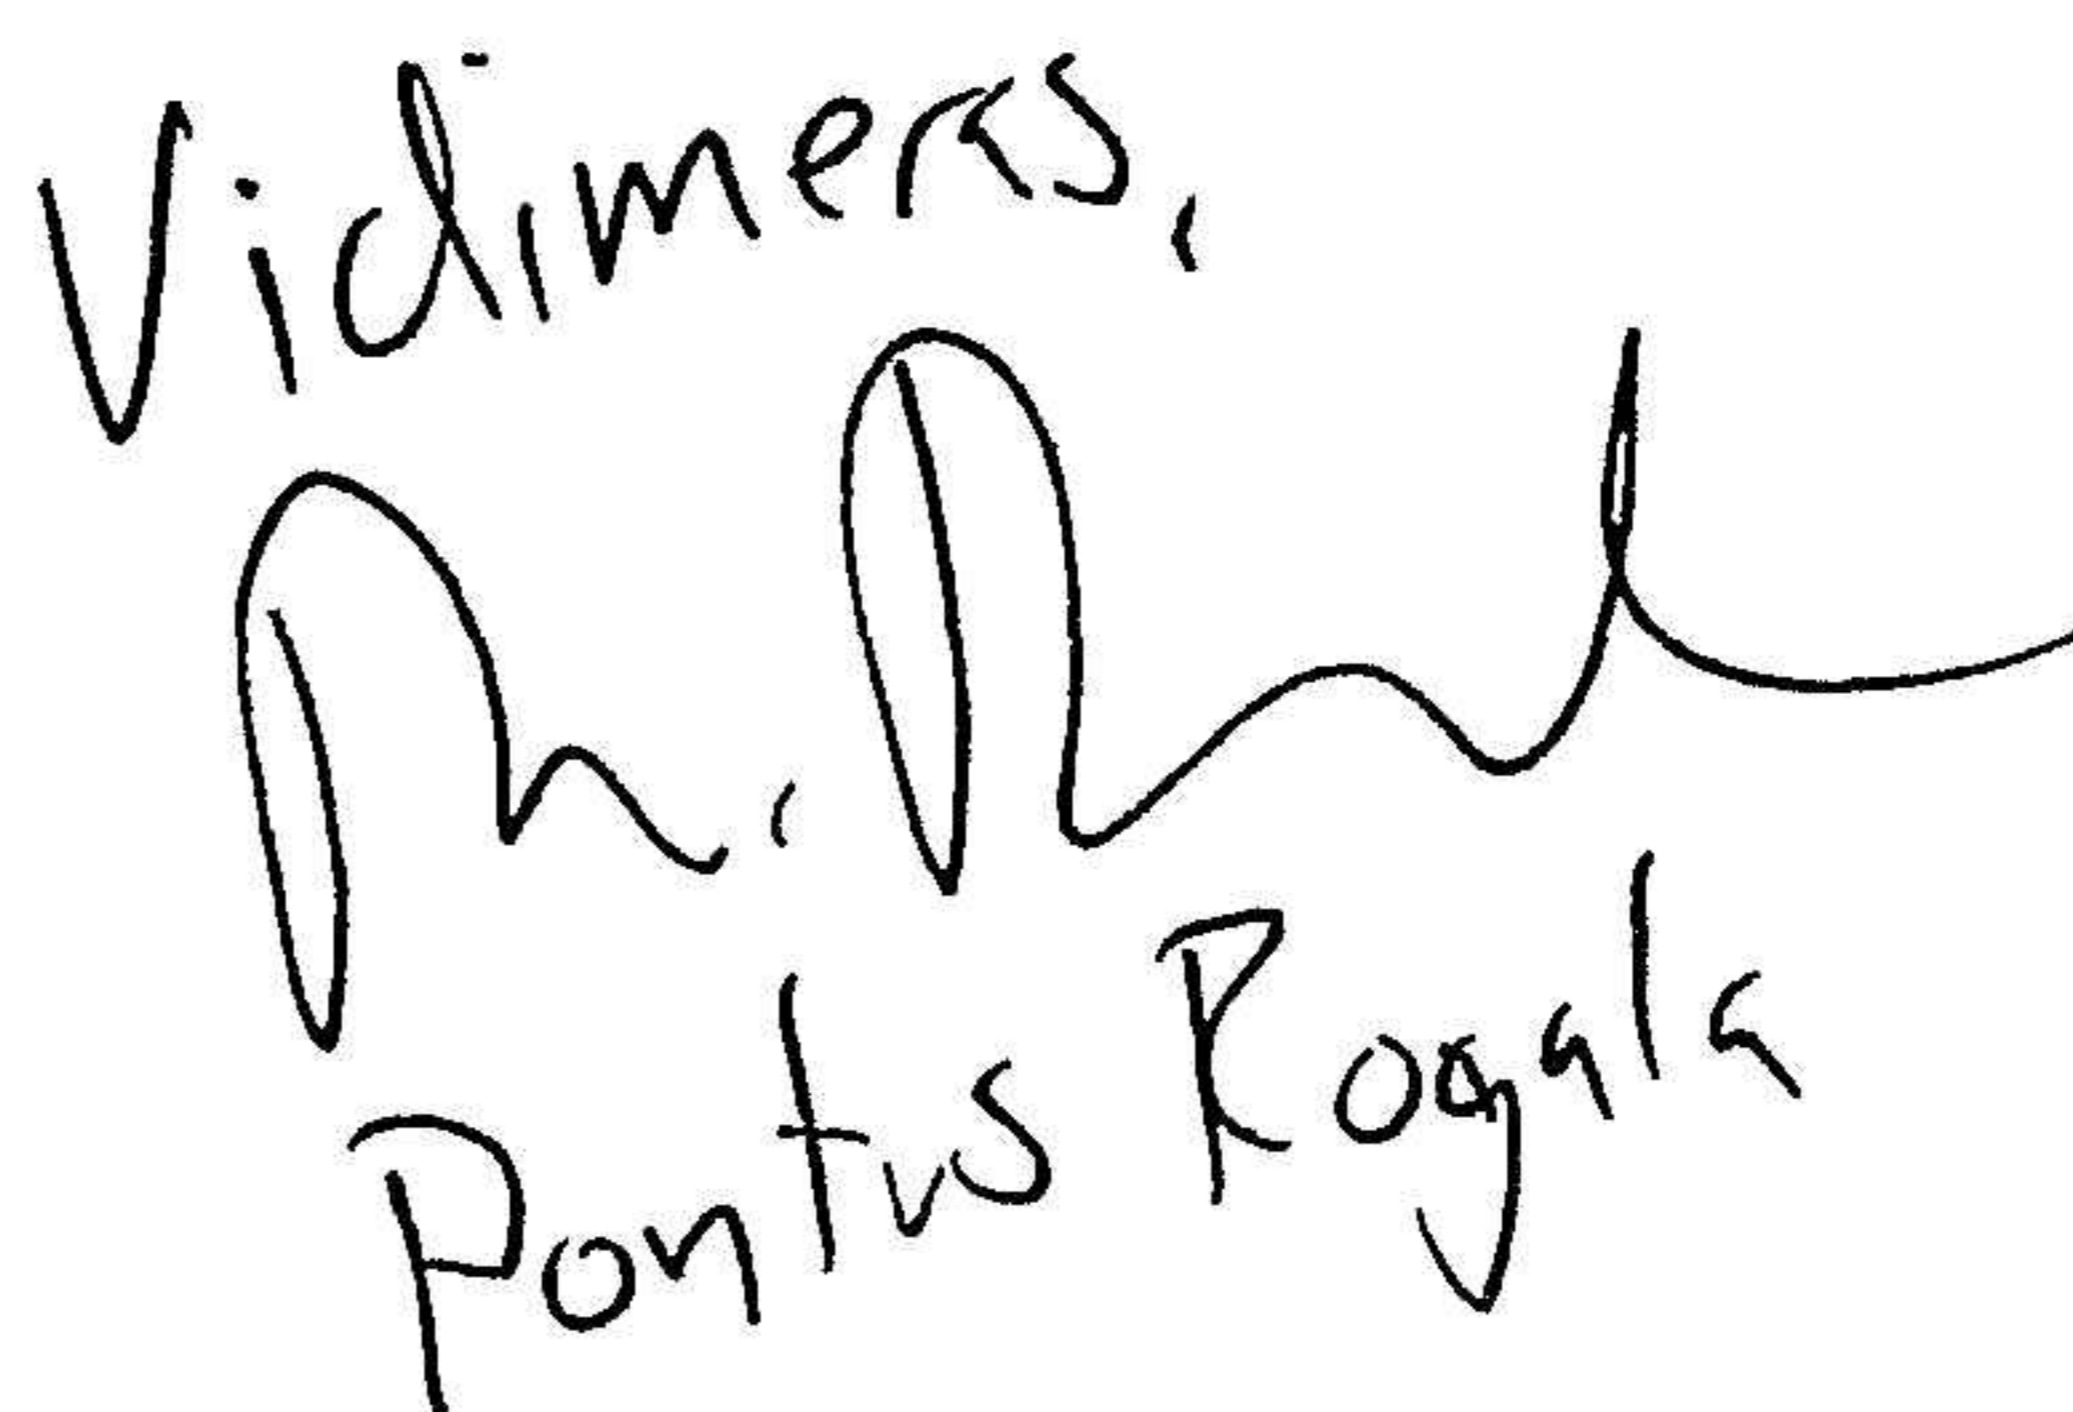 Vidimeras,
Pontus Rogala